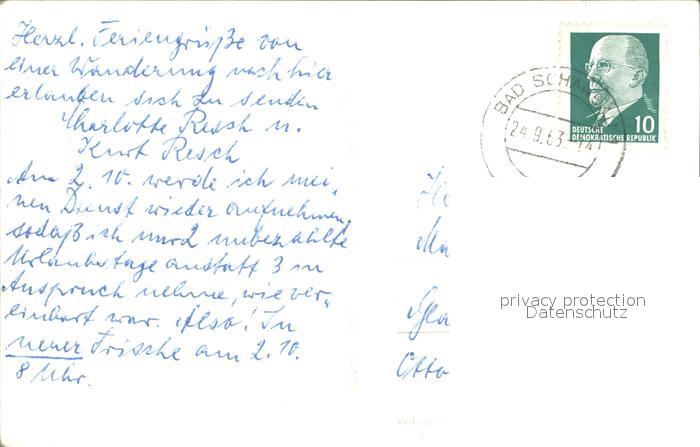 Herzl. Feriengrüße von
einer Wanderung nach hier
erlauben sich zu senden
Charlotte Resch u.
Kurt Resch
Am 2. 10. werde ich mei-
nen Dienst wieder aufnehmen,
sodaß ich nur 2 unbezahlte
Urlaubstage anstatt 3 in
Anspruch nehme, wie ver-
einbart war. Also! In
neuer Frische am 2. 10.
8 Uhr.
BAD SCHAN
24.9.63.
10
DEUTSCHE
DEMOKRATISCHE REPUBLIK
He
Ma
privacy protection
Datenschutz
Gla
Otto